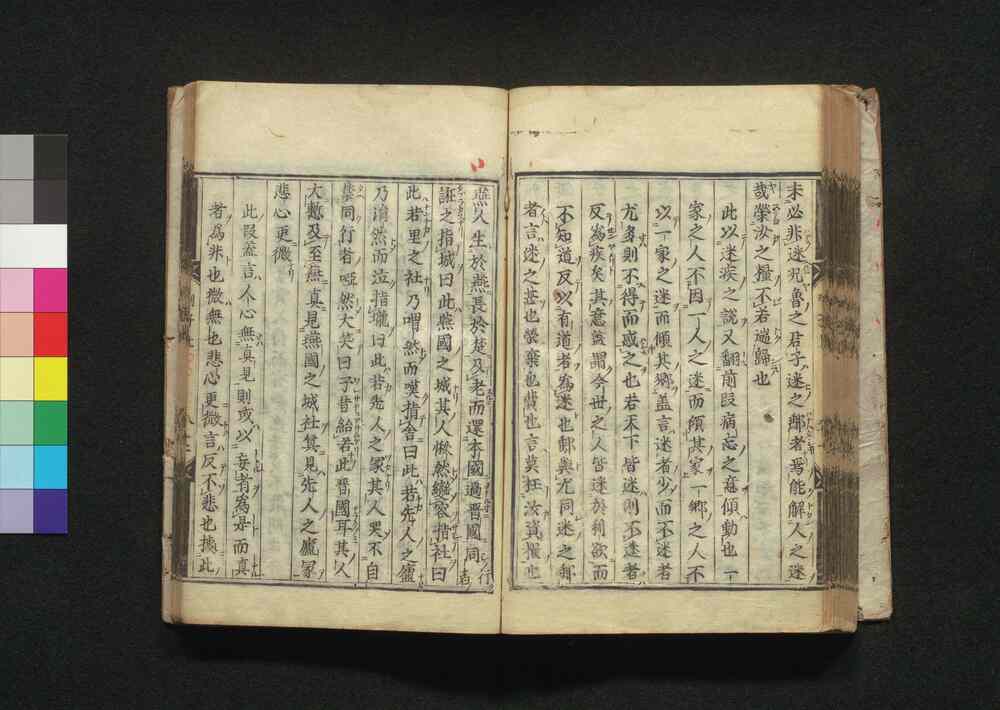 未必非迷況魯之君子迷之郵者焉能解人之迷
哉榮汝之糧不若遄歸也
此以迷疾之說又翻前段病忘之意傾動也一
家之人不因一人之迷而傾其家一鄉之人不
以一家之迷而傾其鄉蓋言迷者少而不迷者
尤多則不得而惑之也若天下皆迷則不迷者
反為疾矣其意蓋謂今世之人皆迷於利欲而
不知道反以有道者為迷也郵與尤同迷之郵
者言迷之甚也榮棄也言莫枉汝資糧也
燕人生於燕長於楚及老而還本國過晉國同行者
誑之指城曰此燕國之城其人愀然變容指社曰
此若里之社乃喟然而嘆指舍曰此若先人之廬
乃涓然而泣指壠曰此若先人之冢其人哭不自
禁同行者啞然大笑曰予昔紿若此晉國耳其人
大慙及至燕真見燕國之城社真見先人之廬冢
悲心更微
此段蓋言人心無真見則或以妄者為是而真
者為非也微無也悲心更微言反不悲也據此